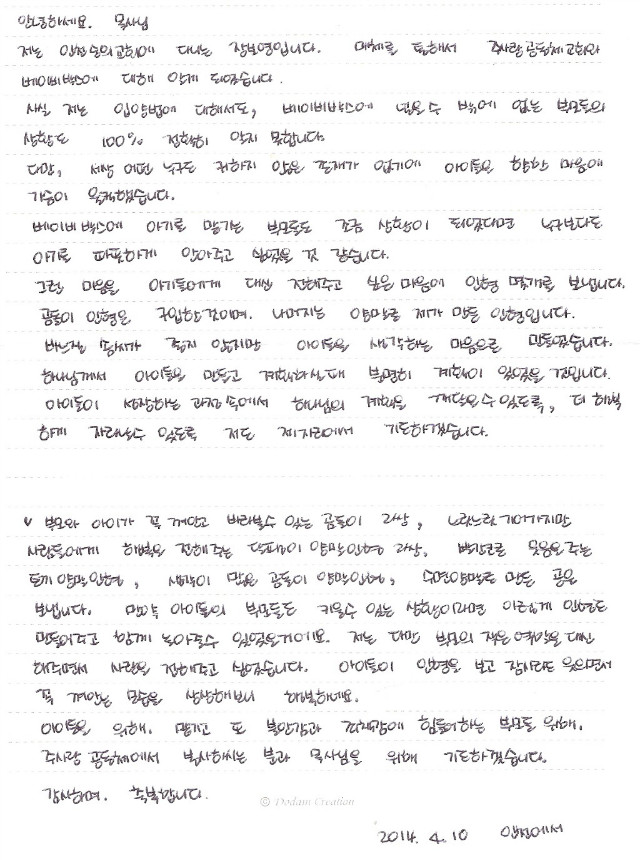 안녕하세요. 목사님
저는 인천 순의교회에 다니는 장보영입니다. 매체를 통해서 주사랑공동체교회와
베이비박스에 대해 알게 되었습니다.
사실 저는 입양법에 대해서도, 베이비박스에 넣을수 밖에 없는 부모들의
상황도 100% 정확히 알지 못합니다.
다만, 세상 어떤 누구도 귀하지 않은 존재가 없기에 아이들을 향한 마음에
가슴이 울컥했습니다.
베이비박스에 아기를 맡기는 부모들도 조금 상황이 되었다면 누구보다도
아기를 따뜻하게 안아주고 싶었을 것 같습니다.
그런 마음을 아기들에게 대신 전해주고 싶은 마음에 인형 몇개를 보냅니다.
곰돌이 인형은 구입한것이며. 나머지는 양말로 제가 만든 인형입니다.
바느질 솜씨가 좋지 않지만 아이들을 생각하는 마음으로 만들었습니다.
하나님께서 아이들을 만들고 계획하실때 분명히 계획이 있었을 것입니다.
아이들이 성장하는 과정 속에서 하나님의 계획을 깨달을수 있도록, 더 행복
하게 자라날수 있도록 저도 제자리에서 기도하겠습니다.
♥ 부모와 아이가 꼭 껴안고 바라볼수 있는 곰돌이 2쌍, 느릿느릿 기어가지만
사람들에게 행복을 전해주는 달팽이 양말인형 2쌍, 빨간코로 웃음을 주는
토끼 양말인형, 생각이 많은 곰돌이 양말인형, 수면양말로 만든 곰을
보냅니다. 만약 아이들의 부모들도 키울수 있는 상황이라면 이렇게 인형도
만들어주고 함께 놀아줄수 있었을거예요. 저는 다만 부모의 작은 역할을 대신
해주면서 사랑을 전해주고 싶었습니다. 아이들이 인형을 보고 잠시라도 웃으면서
꼭 껴안는 모습을 상상해보니 행복하네요.
아이들을 위해. 맡기고 또 불안감과 죄책감에 힘들어하는 부모를 위해.
주사랑 공동체에서 봉사하시는 분과 목사님을 위해 기도하겠습니다.
감사하며. 축복합니다.
© Dodam Creation
2014. 4. 10 인천에서